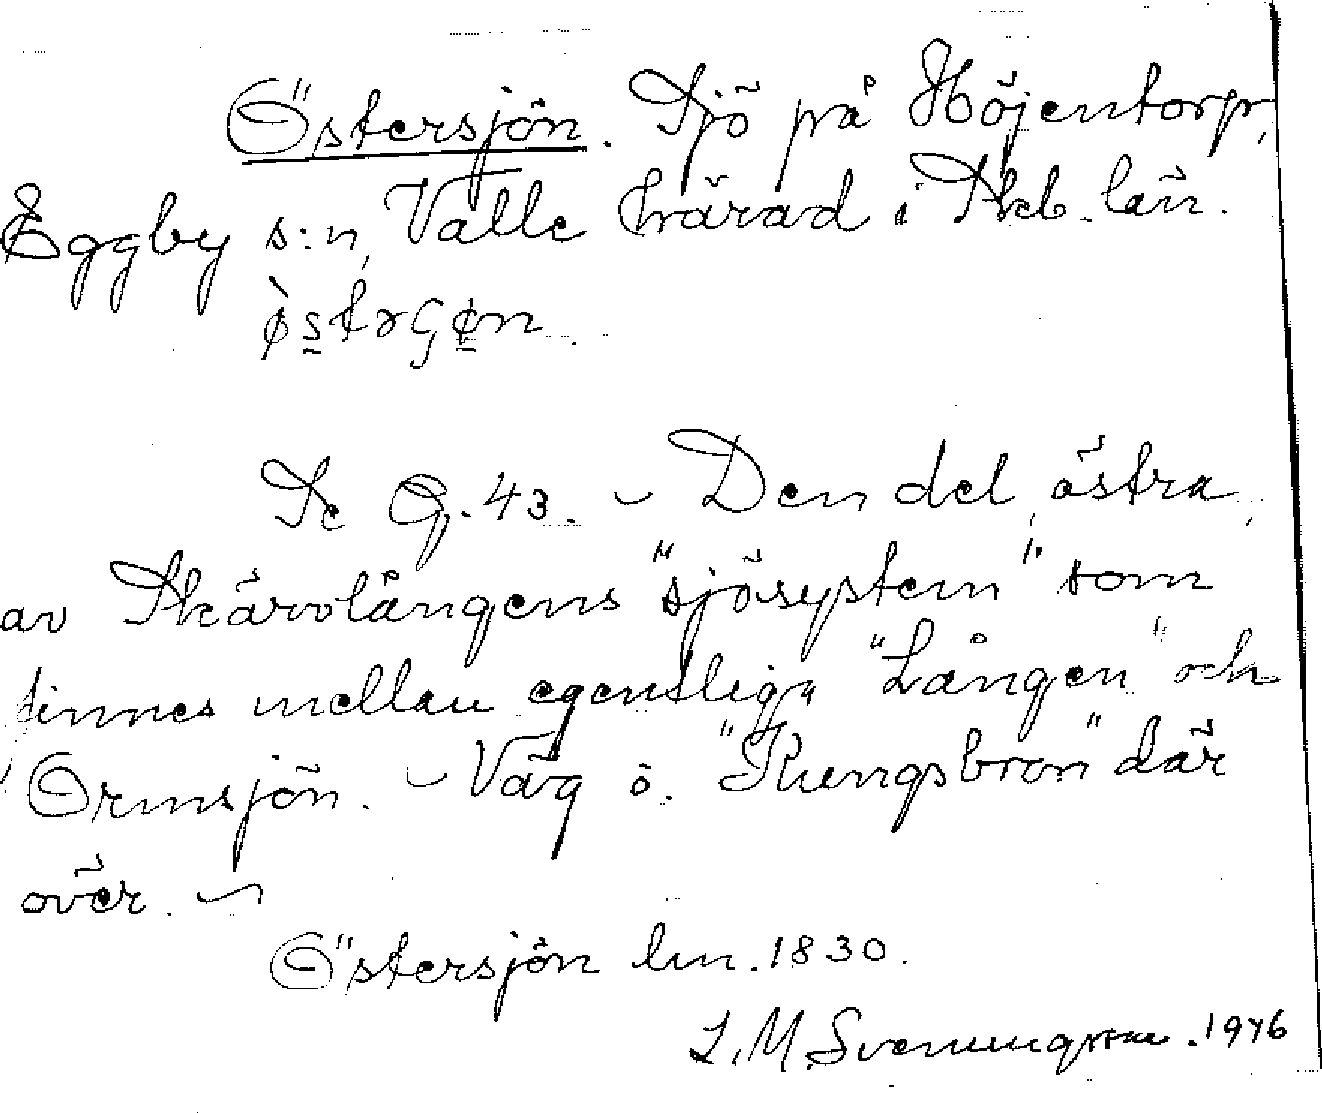 Östersjön. Sjö på Höjentorp,
Eggby s:n, Valle härad i Skb. län.
Se G. 43. - Den del, östra,
av Skärvlångens "sjösystem" som
finnes mellan egentliga "Lången" och
Ormsjön. - Väg ö. "Kungsbron" där
över. -
Östersjön lm. 1830.
L. M. Svenungsson. 1946